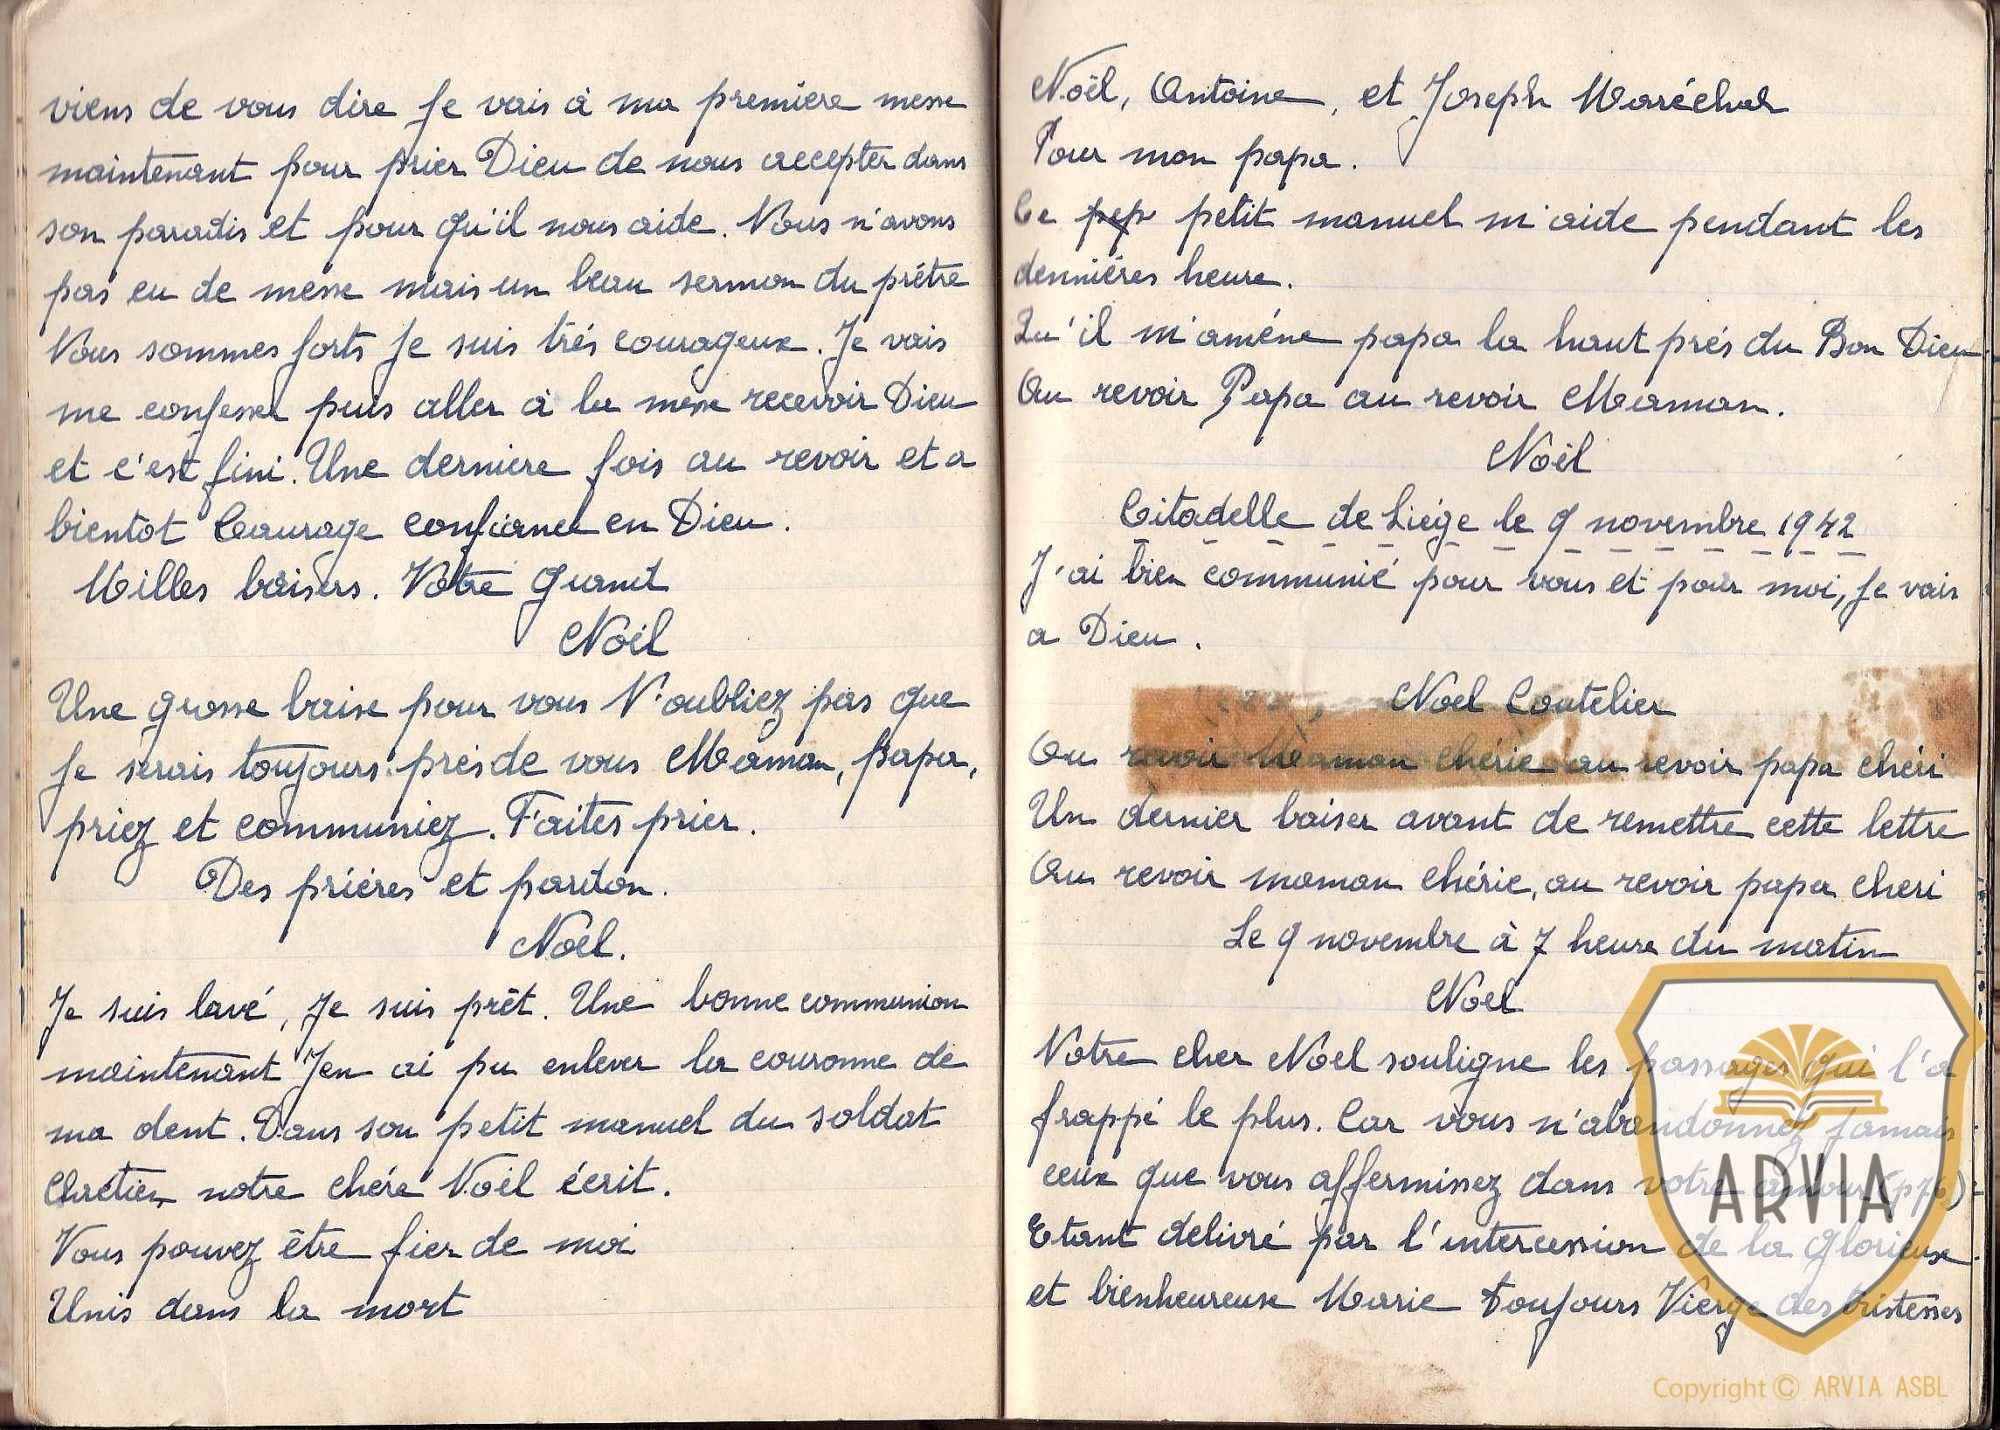 viens de vous dire je vais à ma première messe
maintenant pour prier Dieu de nous accepter dans
son paradis et pour qu'il nous aide. Nous n'avons
pas eu de messe mais un beau sermon du prêtre
Nous sommes forts je suis très courageux. Je vais
me confesser puis aller à la messe recevoir Dieu
et c'est fini. Une derniere fois au revoir et a
bientot Courage confiance en Dieu.
Milles baisers. Votre grand
Noël
Une grosse baise pour vous N'oubliez pas que
je serais toujours près de vous Maman, papa,
priez et communiez. Faites prier.
Des prières et pardon.
Noël.
Je suis lavé, je suis prêt. Une bonne communion
maintenant J'en ai pu enlever la couronne de
ma dent. Dans son petit manuel du soldat
Chrétien notre chére Noël écrit.
Vous pouvez être fier de moi
Unis dans la mort
Noël, Antoine, et Joseph Maréchal
Pour mon papa.
Ce pep petit manuel m'aide pendant les
dernières heure.
Qu'il m'amène papa la haut près du Bon Dieu
Au revoir Papa au revoir Maman.
Noël
Citadelle de Liége le 9 novembre 1942
J'ai bien communié pour vous et pour moi, je vais
a Dieu.
Noel Coutelier
Au revoir Maman chérie au revoir papa chéri
Un dernier baiser avant de remettre cette lettre
Au revoir maman chérie, au revoir papa cheri
Le 9 novembre à 7 heure du matin
Noel
Votre cher Noel souligne les passages qui l'a
frappé le plus. Car vous n'abandonnez jamais
ceux que vous affermissez dans votre amour (p76)
Etant delivré par l'intercession de la glorieuse
et bienheureuse Marie toujours Vierge des tristesses
ARVIA
Copyright © ARVIA ASBL